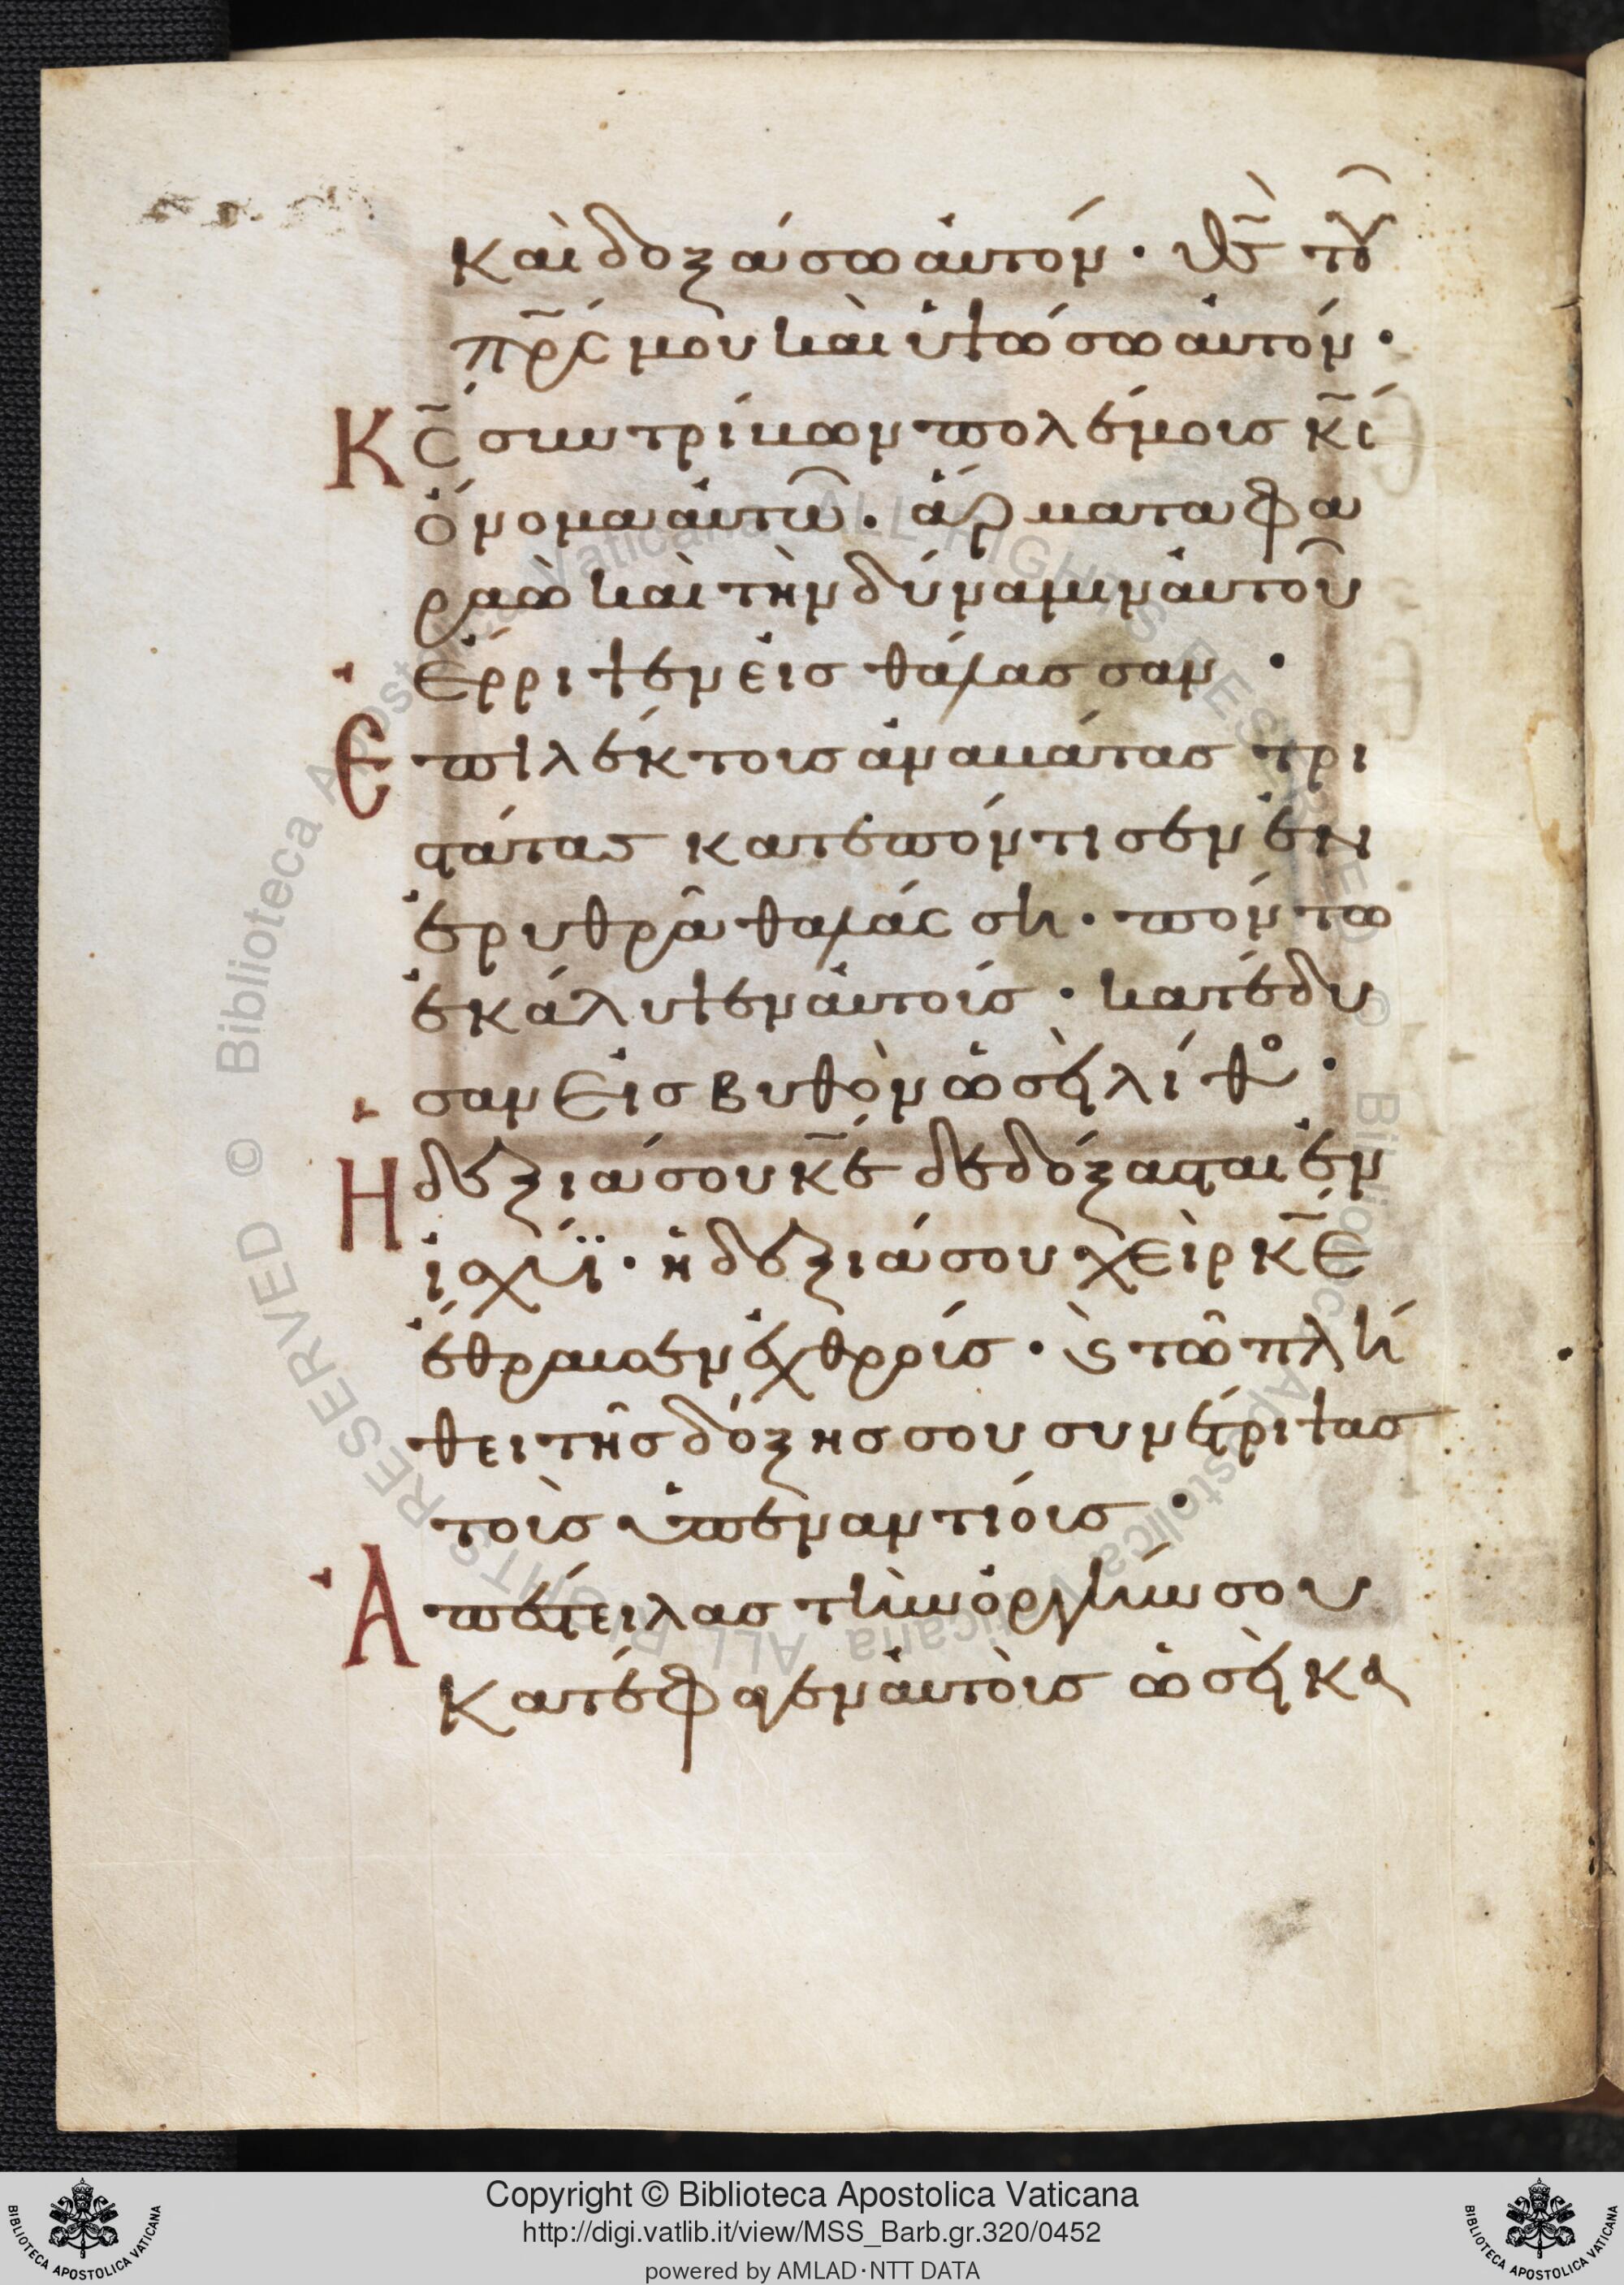 καὶ δοξάσω αὐτόν · θ̅ς̅ τοῦ
π̅ρ̅ς̅ μου καὶ ὑψώσω αὐτόν ·
Κ̅ς̅ συντρίβων πολέμοις κ̅ς̅
ὄνομα αὐτῶ · ἅρματα φα
ραὼ καὶ τὴν δύναμιν αὐτοῦ
ἔρριψεν εἰς θάλασσαν ·
Ἐπιλέκτοις ἀναβάτας τρι
στάτας κατεπόντισεν ἐν
ἐρυθρᾶ θαλάσση · πόντω
ἐκάλυψεν αὐτοίς · κατέδυ
σαν εἰς βυθὸν ὡσεὶ λίθο ·
Ἡ δεξιά σου κ̅ε̅ δεδόξασται ἐν
ἰσχύϊ · ἡ δεξιά σου χεὶρ κ̅ε̅
ἔθραυσεν ἐχθροίς · ϗ τῶ πλή
θει τῆς δόξης σου συνέτριψας
τοὶς ὑπεναντίοις ·
Ἀπέστειλας τὴν ὀργήν σου
κατέφαγεν αὐτοὶς ὡσεὶ κα
Copyright © Biblioteca Apostolica Vaticana
http://digi.vatlib.it/view/MSS_Barb.gr.320/0452
powered by AMLAD·NTT DATA
BIBLIOTECA APOSTOLICA VATICANA
BIBLIOTECA APOSTOLICA VATICANA
Biblioteca Apostolica Vaticana ALL RIGHTS RESERVED ©
Biblioteca Apostolica Vaticana ALL RIGHTS RESERVED ©